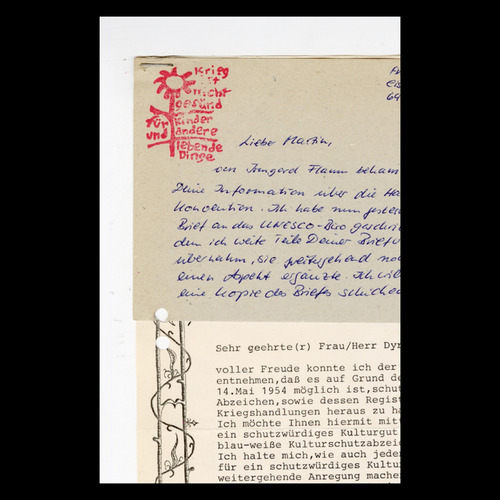 Krieg
ist
nicht
gesund
für Kinder
und andere
lebende
Dinge
Liebe Martin,
von Irmgard Flamm bekam
Deine Information über die Ha
Konvention. Ich habe nun gestern
Brief an das UNESCO-Büro geschri
den ich weite Teile Deiner Briefv
übernahm, sie weitgehend no
einen Aspekt ergänzte. Ich will
eine Kopie des Briefes schicken
Sehr geehrte(r) Frau/Herr Dyr
voller Freude konnte ich der
entnehmen,daß es auf Grund de
14.Mai 1954 möglich ist,schut
Abzeichen,sowie dessen Regist
Kriegshandlungen heraus zu ha
Ich möchte Ihnen hiermit mitt
ein schutzwürdiges Kulturgut
blau-weiße Kulturschutzabzei
Ich halte mich,wie auch jeden
für ein schutzwürdiges Kultu
weitergehende Anregung machen